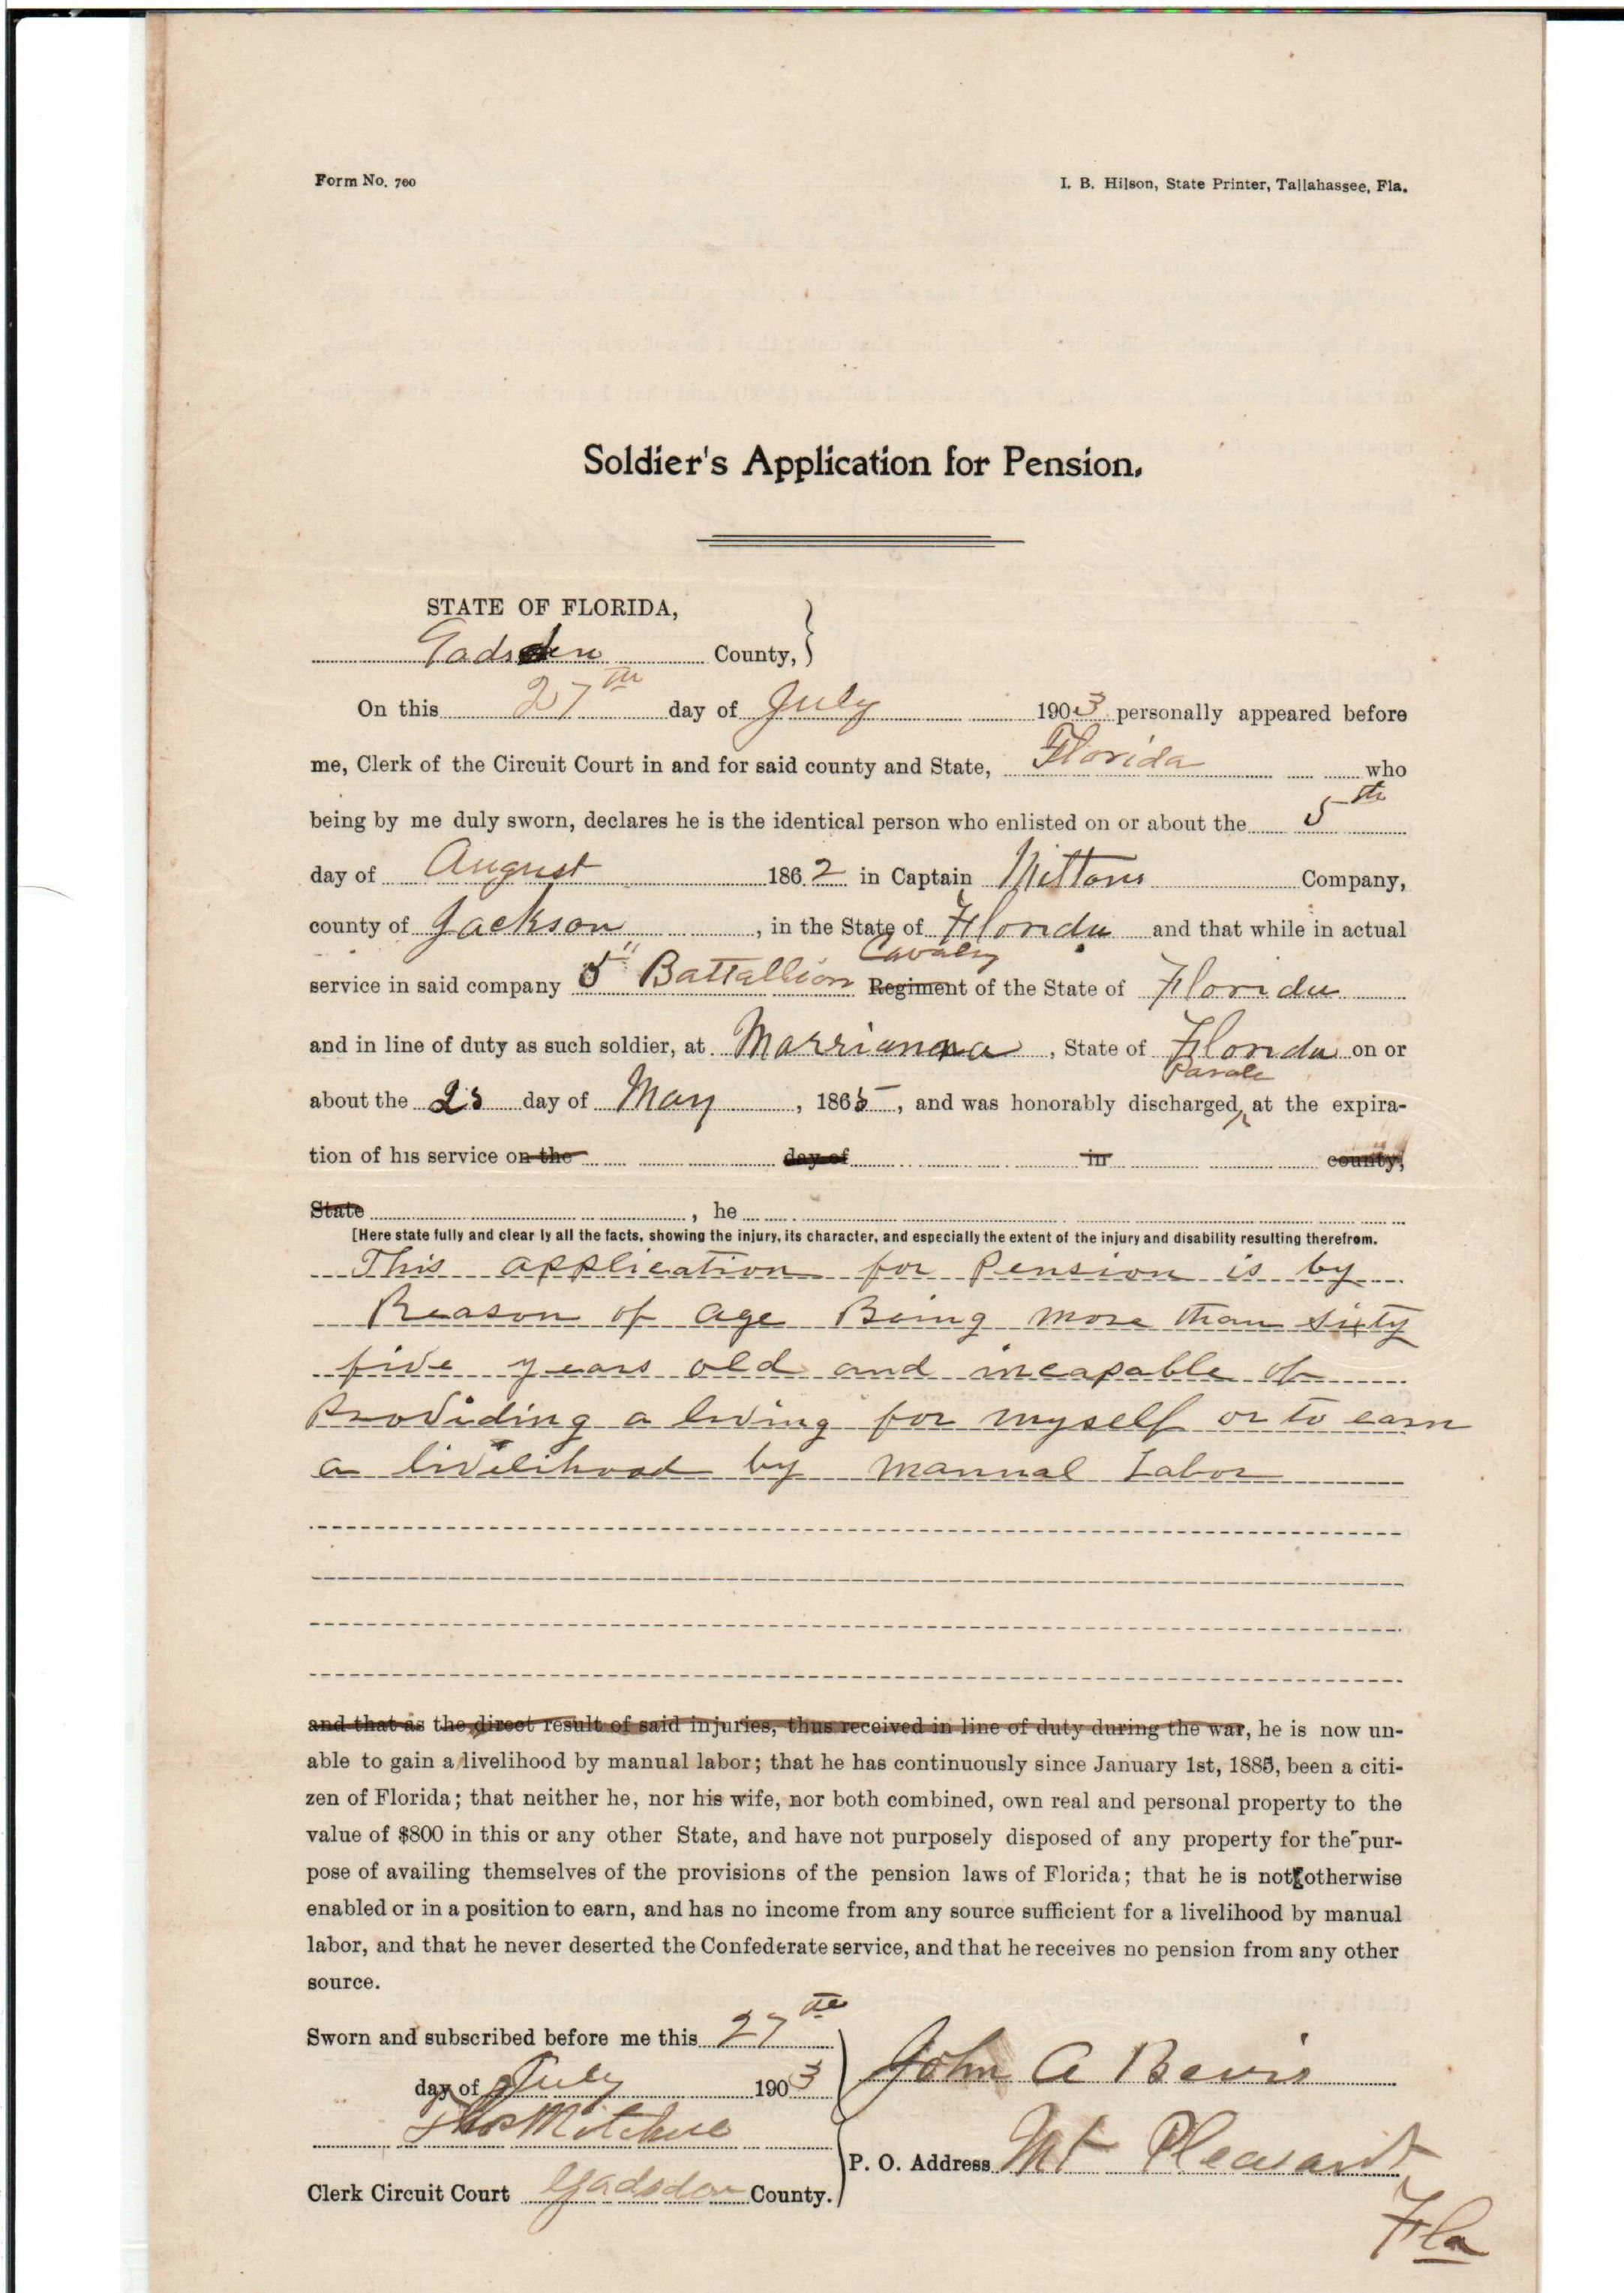 Form No. 700
I. B. Hilson, State Printer, Tallahassee, Fla.
Soldier's Application for Pension.
STATE OF FLORIDA,
Gadsden County, }
On this 27th day of July 1903 personally appeared before
me, Clerk of the Circuit Court in and for said county and State, Florida who
being by me duly sworn, declares he is the identical person who enlisted on or about the 5th
day of August 1862 in Captain Company,
county of Jackson, in the State of Florida and that while in actual
Cavalry
service in said company 5" Battallion Regiment of the State of Florida
and in line of duty as such soldier, at Marrianna, State of Florida on or
Parole
about the 25 day of May, 1865, and was honorably discharged, at the expira-
tion of his service on the day of in county,
State, he
[Here state fully and clear ly all the facts, showing the injury, its character, and especially the extent of the injury and disability resulting therefrom.
This application for Pension is by
Reason of age Being more than sixty
five years old and incapable of
Providing a living for myself or to earn
a livelihood by manual Labor
and that as the direct result of said injuries, thus received in line of duty during the war, he is now un-
able to gain a livelihood by manual labor; that he has continuously since January 1st, 1885, been a citi-
zen of Florida; that neither he, nor his wife, nor both combined, own real and personal property to the
value of $800 in this or any other State, and have not purposely disposed of any property for the pur-
pose of availing themselves of the provisions of the pension laws of Florida; that he is not otherwise
enabled or in a position to earn, and has no income from any source sufficient for a livelihood by manual
labor, and that he never deserted the Confederate service, and that he receives no pension from any other
source.
Sworn and subscribed before me this 27th
day of July 1903
John A Bevis
Clerk Circuit Court Gadsden County.
P. O. Address Mt Pleasant
Fla